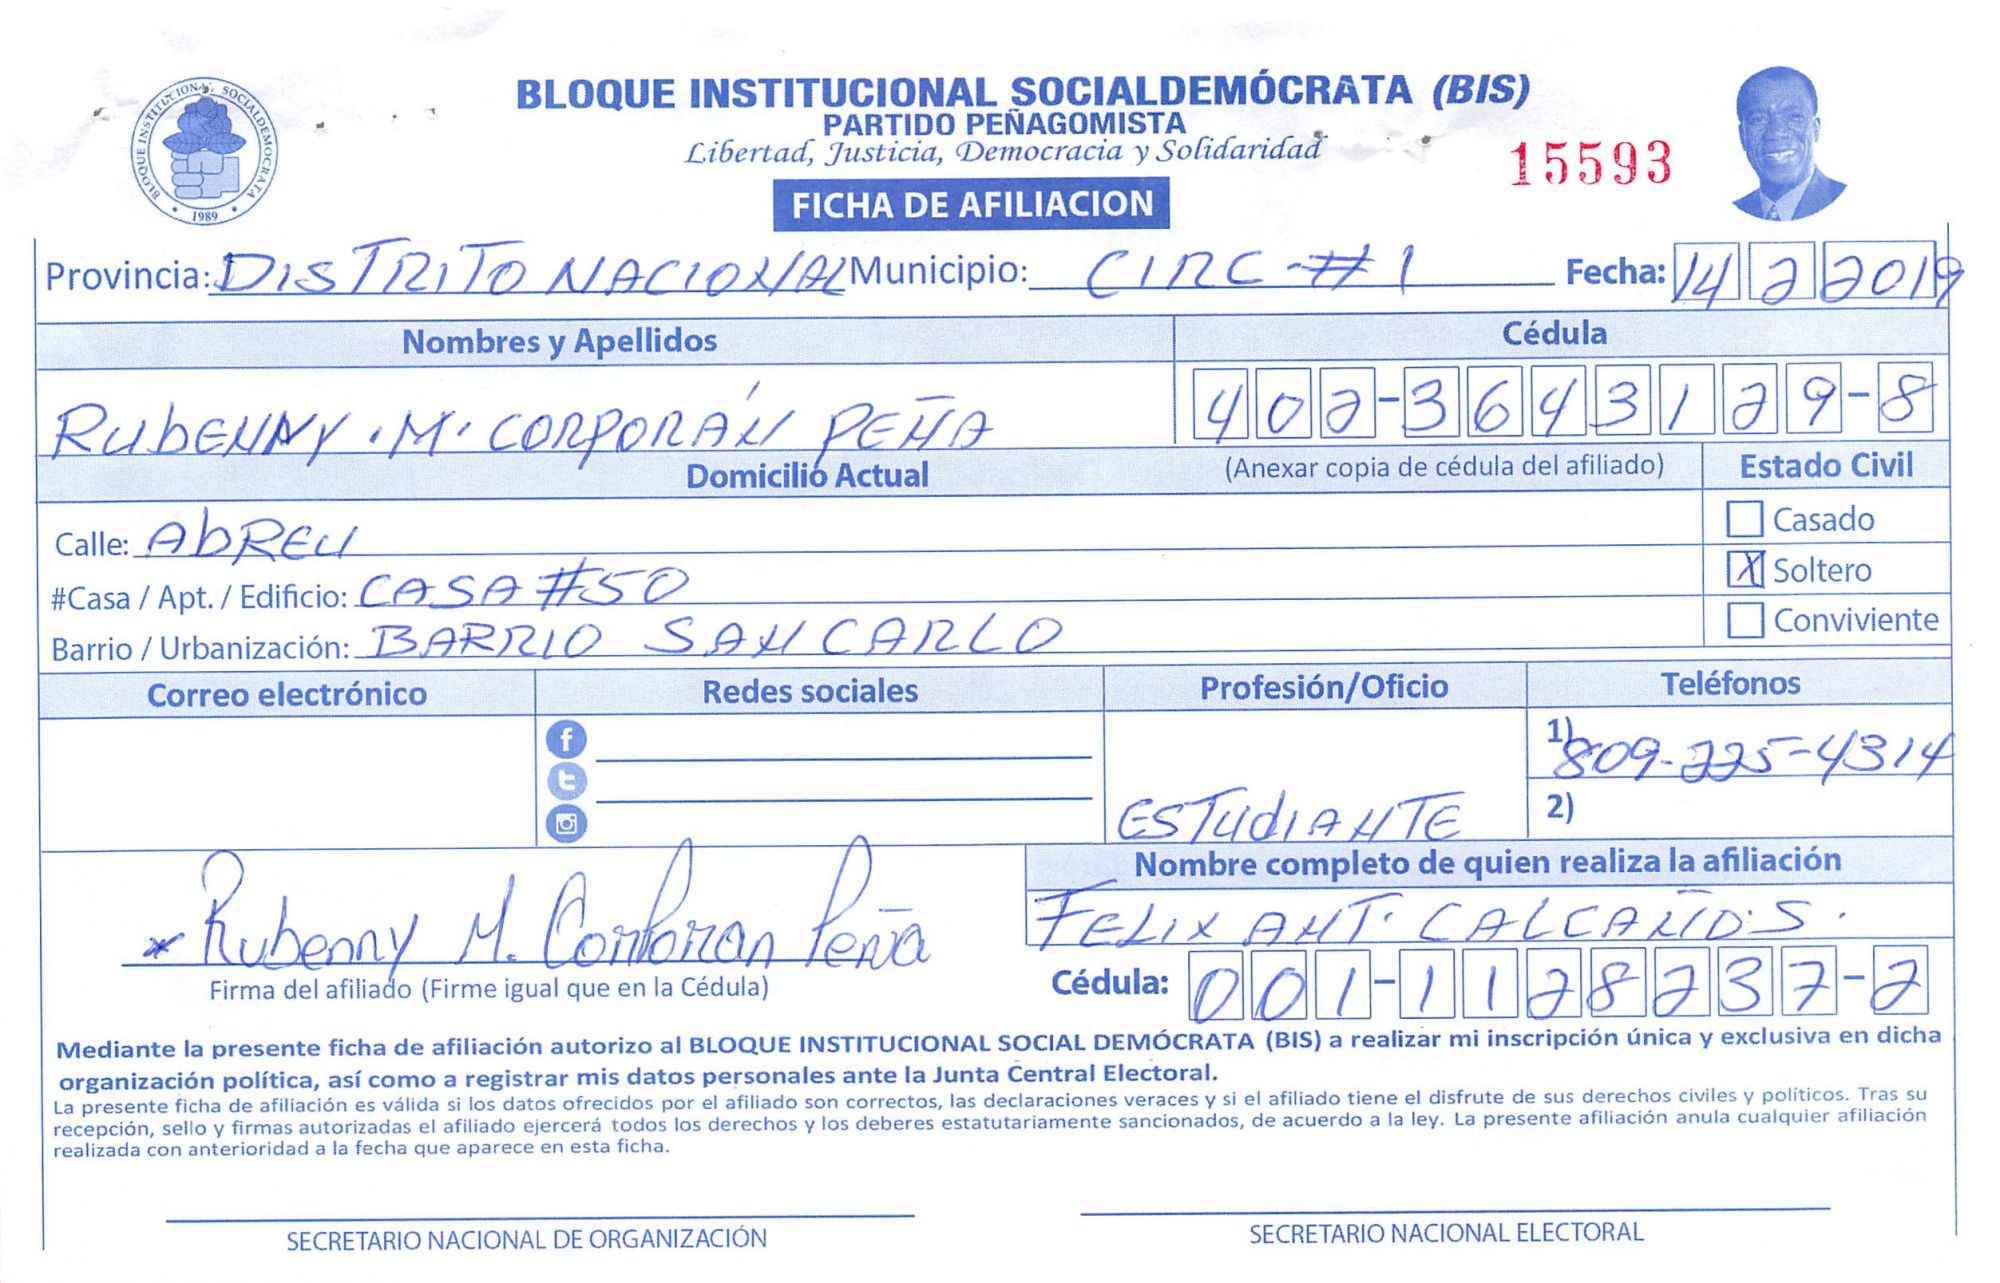 BLOQUE INSTITUCIONAL SOCIALDEMÓCRATA
1989
BLOQUE INSTITUCIONAL SOCIALDEMÓCRATA (BIS)
PARTIDO PEÑAGOMISTA
Libertad, Justicia, Democracia y Solidaridad
15593
FICHA DE AFILIACION
Provincia: DISTRITO NACIONAL Municipio: CIRC-#1 Fecha: 14 2 2019
Nombres y Apellidos Cédula
RubENNY.M. CORPORÁN PEÑA 402-3643129-8
Domicilió Actual (Anexar copia de cédula del afiliado) Estado Civil
Calle: AbREU Casado
#Casa / Apt. / Edificio: CASA #50 X Soltero
Barrio / Urbanización: BARRIO SAN CARLO Conviviente
Correo electrónico Redes sociales Profesión/Oficio Teléfonos
1) 809-225-4314
ESTUdIANTE 2)
Nombre completo de quien realiza la afiliación
FELIX ANT. CALCAÑO.S.
x Rubenny M. Corporan Peña
Firma del afiliado (Firme igual que en la Cédula) Cédula: 001-1128237-2
Mediante la presente ficha de afiliación autorizo al BLOQUE INSTITUCIONAL SOCIAL DEMÓCRATA (BIS) a realizar mi inscripción única y exclusiva en dicha
organización política, así como a registrar mis datos personales ante la Junta Central Electoral.
La presente ficha de afiliación es válida si los datos ofrecidos por el afiliado son correctos, las declaraciones veraces y si el afiliado tiene el disfrute de sus derechos civiles y políticos. Tras su
recepción, sello y firmas autorizadas el afiliado ejercerá todos los derechos y los deberes estatutariamente sancionados, de acuerdo a la ley. La presente afiliación anula cualquier afiliación
realizada con anterioridad a la fecha que aparece en esta ficha.
SECRETARIO NACIONAL DE ORGANIZACIÓN SECRETARIO NACIONAL ELECTORAL